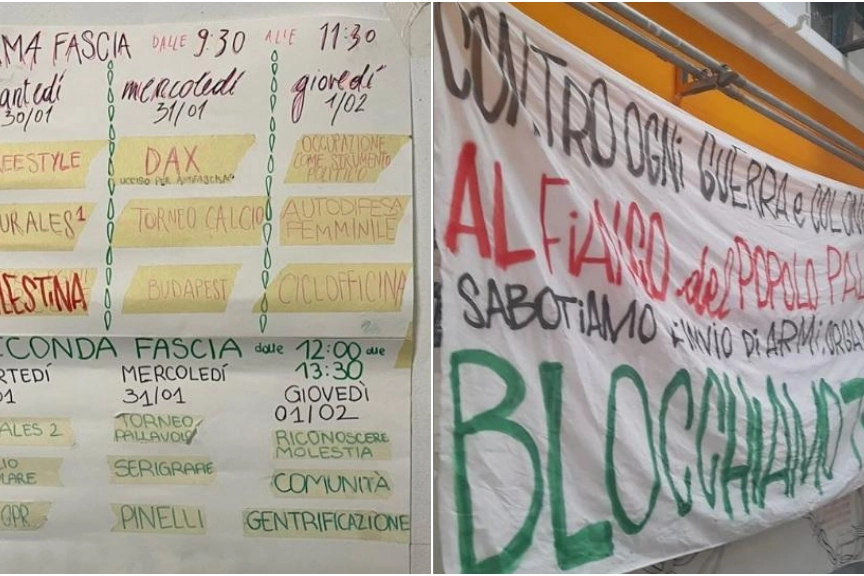 MA FASCIA DALLE 9:30 ALLE 11:30
artedí
30/01
mercoledí
31/01
giovedí
1/02
REESTYLE
DAX
UCCISO PER
OCCUPAZIONE
COME STRUMENTO
POLITICO
URALES 1
TORNEO CALCIO
AUTODIFESA
FEMMINILE
LESTINA
BUDAPEST
CICLOFFICINA
ECONDA FASCIA dalle 12:00 alle
13:30
RTEDÍ
01
MERCOLEDÍ
31/01
GIOVEDÌ
01/02
ALES 2
TORNEO
PALLAVOLO
RICONOSCERE
MOLESTIA
LIO
LARE
SERIGRAFIE
COMUNITÀ
GPR
PINELLI
GENTRIFICAZIONE
CONTRO OGNI GUERRA e COLON
AL FIANCO del POPOLO PAL
SABOTIAMO l'INVIO DI ARMI. ORGA
BLOCCHIAMO T